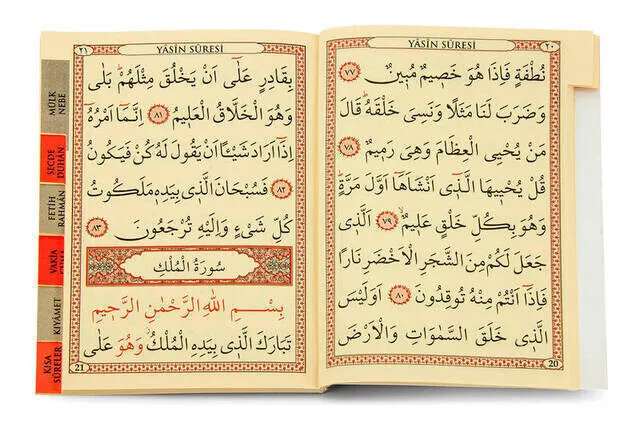 ٢٠
YÂSÎN SÛRESİ
نُطْفَةٍ فَاِذَا هُوَ خَص۪يمٌ مُب۪ينٌ ٧٧
وَضَرَبَ لَنَا مَثَلًا وَنَسِيَ خَلْقَهُۜ قَالَ
مَنْ يُحْيِي الْعِظَامَ وَهِيَ رَم۪يمٌ ٧٨
قُلْ يُحْي۪يهَا الَّذ۪ٓي اَنْشَاَهَٓا اَوَّلَ مَرَّةٍۜ
وَهُوَ بِكُلِّ خَلْقٍ عَل۪يمٌۙ ٧٩ اَلَّذ۪ي
جَعَلَ لَكُمْ مِنَ الشَّجَرِ الْاَخْضَرِ نَارًا
فَاِذَٓا اَنْتُمْ مِنْهُ تُوقِدُونَ ٨٠ اَوَلَيْسَ
الَّذ۪ي خَلَقَ السَّمٰوَاتِ وَالْاَرْضَ
20
٢١
YÂSÎN SÛRESİ
بِقَادِرٍ عَلٰٓى اَنْ يَخْلُقَ مِثْلَهُمْۜ بَلٰى
وَهُوَ الْخَلَّاقُ الْعَل۪يمُ ٨١ اِنَّمَٓا اَمْرُهُٓ
اِذَٓا اَرَادَ شَيْـًٔا اَنْ يَقُولَ لَهُ كُنْ فَيَكُونُ
٨٢ فَسُبْحَانَ الَّذ۪ي بِيَدِه۪ مَلَكُوتُ
كُلِّ شَيْءٍ وَاِلَيْهِ تُرْجَعُونَ ٨٣
سُورَةُ الْمُلْكِ
بِسْمِ اللّٰهِ الرَّحْمٰنِ الرَّح۪يمِ
تَبَارَكَ الَّذ۪ي بِيَدِهِ الْمُلْكُۘ وَهُوَ عَلٰى
21
MÜLK
NEBE
SECDE
DUHÂN
FETİH
RAHMÂN
VAKIA
CUMA
KIYÂMET
KISA
SÛRELER